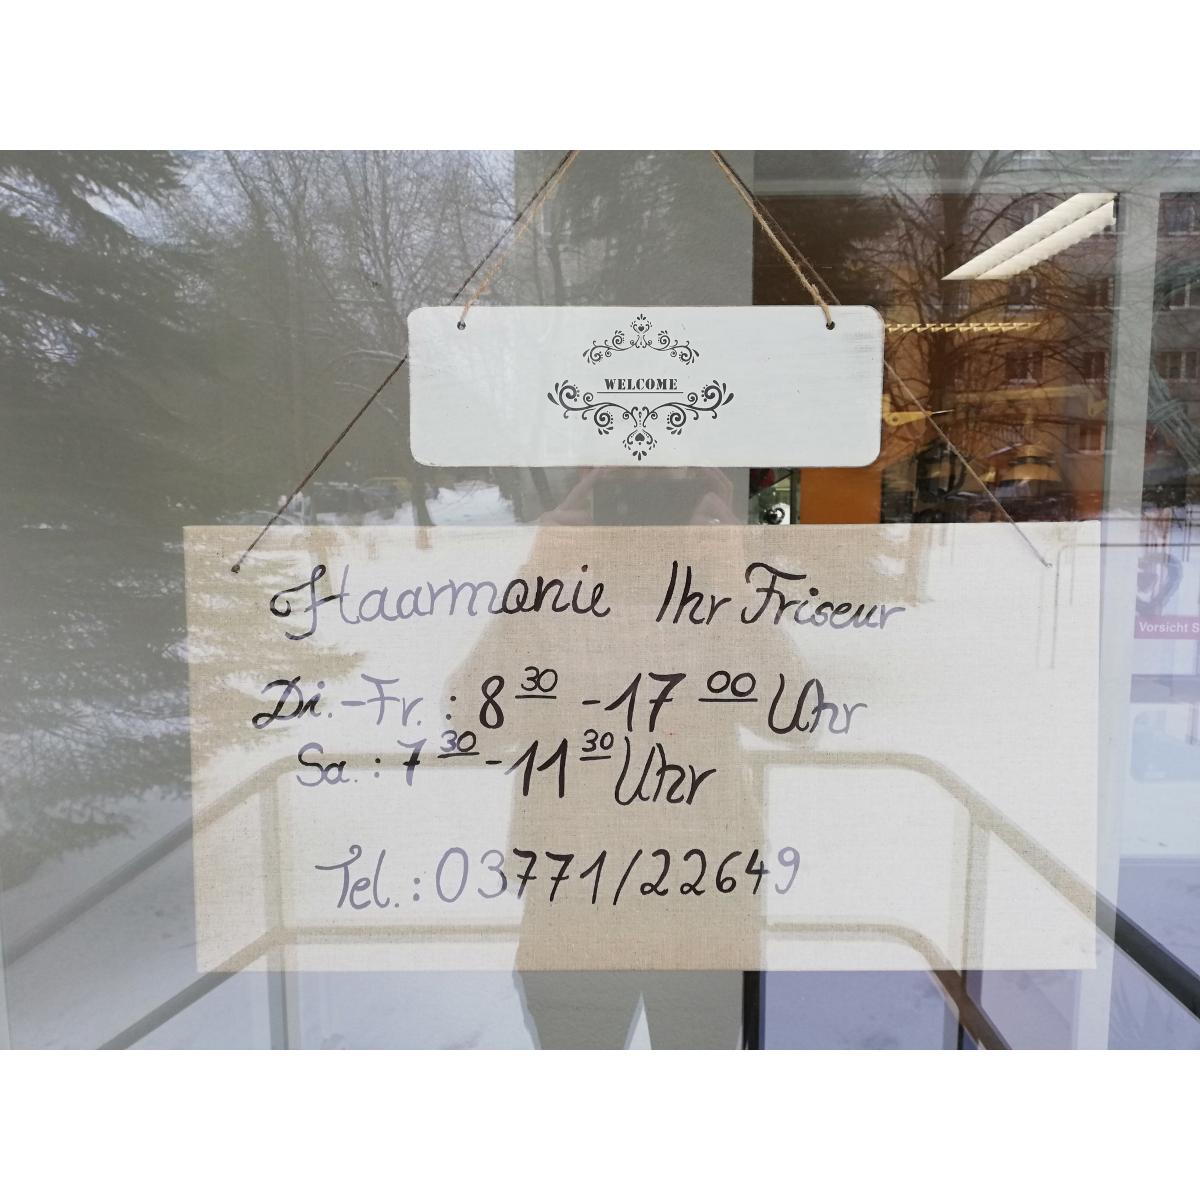 WELCOME
Haarmonie Ihr Friseur
Di.-Fr.: 8 30 - 17 00 Uhr
Sa.: 7 30 - 11 30 Uhr
Tel.: 03771/22649
Vorsicht